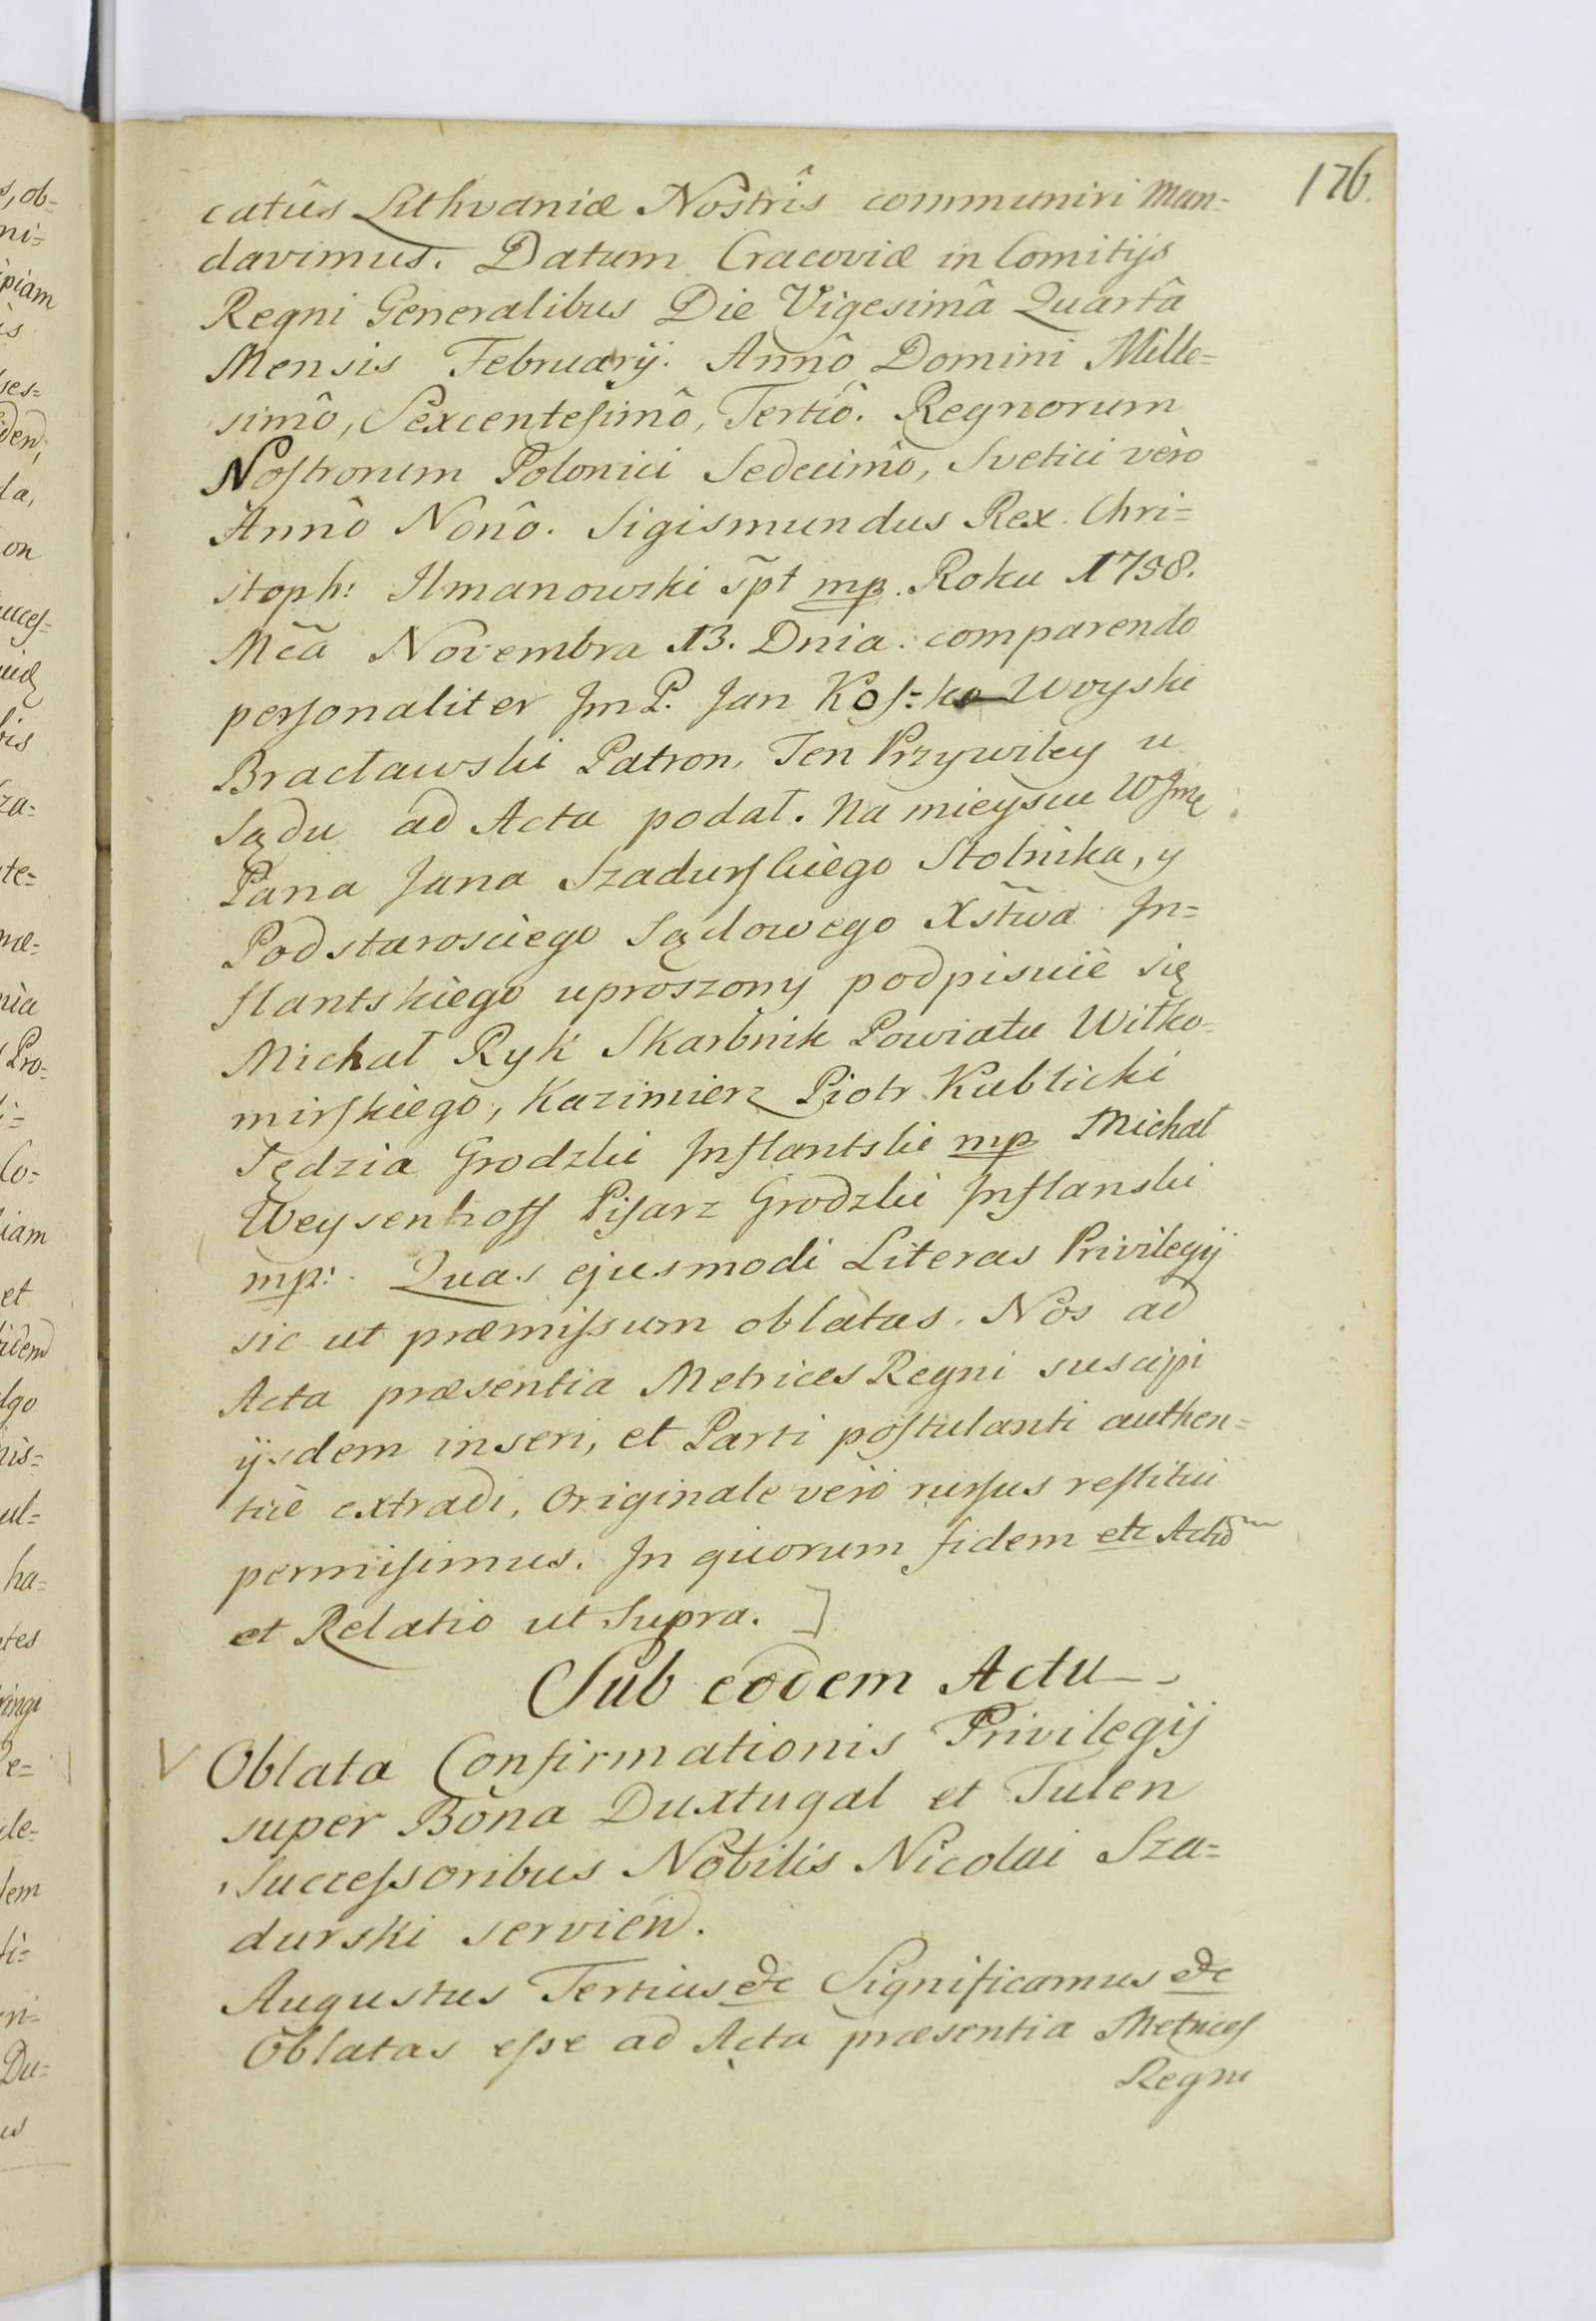 176.
catûs Lithvaniæ Nostrîs communiri Man=
davimus. Datum Cracoviæ in Comitijs
Regni Generalibus Die Vigesimâ Quartâ
Mensis Februarij. Annô Domini Mille=
simô, Sexcentesimô, Tertiô. Regnorum
Nostrorum Polonici Sedecimô, Svetici verò
Annô Nonô. Sigismundus Rex. Chri=
stoph: Ilmanowski Spt mp. Roku 1758.
Mca Novembra 13. Dnia. comparendo
personaliter Jm P. Jan Kos=ko Woyski
Bracławski Patron, Ten Przywiley u
Sądu ad Acta podał. Na mieyscu WJmę
Pana Jana Szadurskiego Stolnika, y
Podstarosciego Sądowego Xstwa In=
flantskiego uproszony podpisuię się
Michał Ryk Skarbnik Powiatu Wiłko=
mirskiego, Kazimierz Piotr Kublicki
Sędzia Grodzki Inflantski mp Michał
Weysenhoff Pisarz Grodzki Inflanski
mp: Quas ejusmodi Literas Privilegij
sic ut præmissum oblatas. Nos ad
Acta præsentia Metrices Regni suscipi
ijsdem inseri, et Parti postulanti authen=
ticè extradi, Originale verò rursus restitui
permisimus. In quorum fidem etc Actũ
et Relatio ut Supra. ]
Sub eodem Actu
V Oblata Confirmationis Privilegij
super Bona Duxtugal et Tulen
Successoribus Nobilis Nicolai Sza=
durski servien.
Augustus Tertius etc Significamus etc
Oblatas esse ad Acta præsentia Metrices
Regni
s, ob=
ni=
piam
is
ses=
la,
on
bis
za=
te=
me=
nia
Pro=
Co=
iam
et
idem
lgo
nis=
ul=
ha=
tes
ringi
e=
ile=
lem
Du=
us